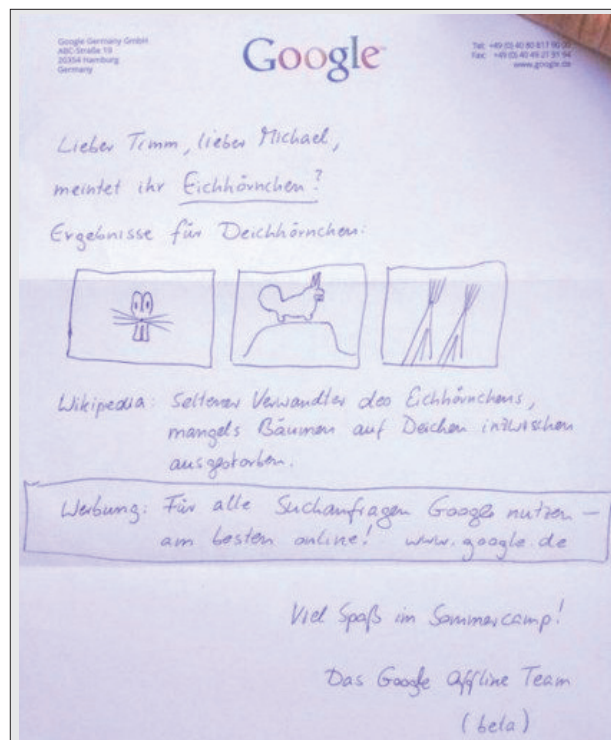 Google Germany GmbH
ABC-Straße 19
20354 Hamburg
Germany
Google
Tel: +49 (0) 40 80 81 79 00
Fax: +49 (0) 40 49 21 91 94
www.google.de
Lieber Timm, lieber Michael,
meintet ihr Eichhörnchen?
Ergebnisse für Deichhörnchen:
Wikipedia: Seltener Verwandter des Eichhörnchens,
mangels Bäumen auf Deichen inzwischen
ausgestorben.
Werbung: Für alle Suchanfragen Google nutzen –
am besten online! www.google.de
Viel Spaß im Sommercamp!
Das Google Offline Team
(beta)